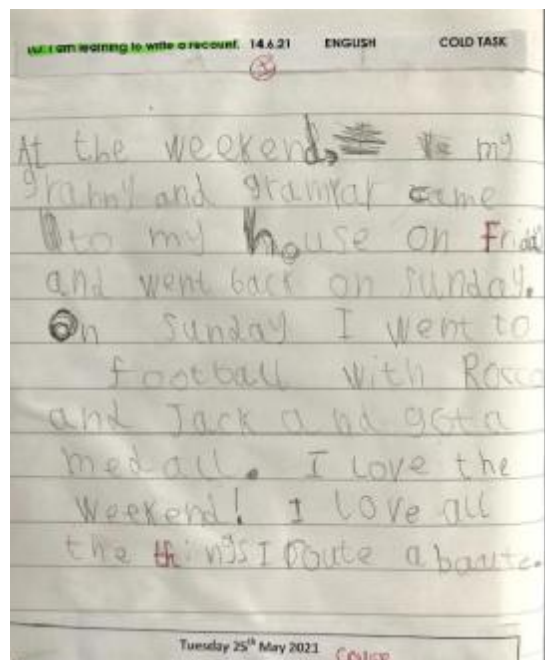 WJ: I am learning to write a recount. 14.6.21 ENGLISH COLD TASK
At the weekend, my
granny and grampar came
to my house on Frida
and went back on sunday.
On sunday I went to
football with Rocco
and Jack and got a
medall. I love the
weekend! I love all
the things I route abaute.
Tuesday 25th May 2021